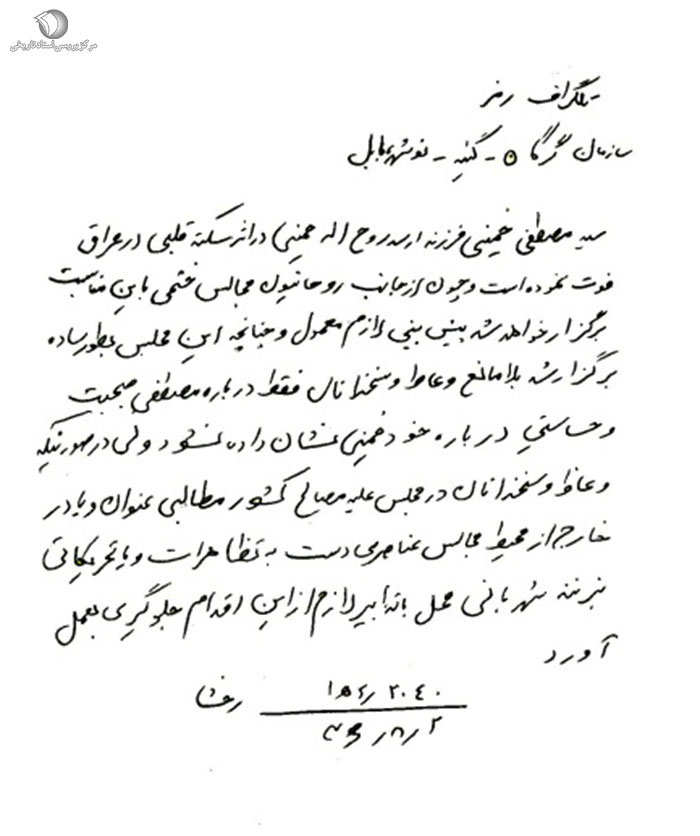 مرکز بررسی اسناد تاریخی
تلگراف رمز
سازمان گرگان - گنبد - نوشهر بابل
سید مصطفی خمینی فرزند ارشد روح اله خمینی در اثر سکته قلبی در عراق
فوت نموده است و چون از جانب روحانیون مجالس ختمی باین مناسبت
برگزار خواهد شد پیش بینی لازم معمول و چنانچه این مجلس بطور ساده
برگزار شد بلامانع و عاظ و سخنرانان فقط درباره مصطفی صحبت
و حساستی درباره خود خمینی نشان داده نشود ولی در صورتیکه
وعاظ و سخنرانان در مجلس علیه مصالح کشور مطالبی عنوان و یا در
خارج از محیط مجالس عناصری دست به تظاهرات و یا تحریکاتی
بزنند شهربانی محل با تدابیر لازم از این اقدام جلوگیری بعمل
آورد
۲۰۴۰
۲ر۸ر۳۶